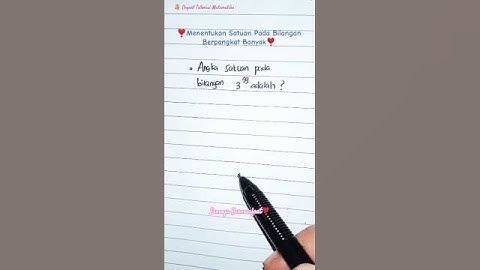 Dapat Tutorial Matematika
❣️Menentukan Satuan Pada Bilangan
Berpangkat Banyak❣️
• Angka satuan pada
bilangan 3⁹⁹ adalah ?
Semoga Bermanfaat❣️